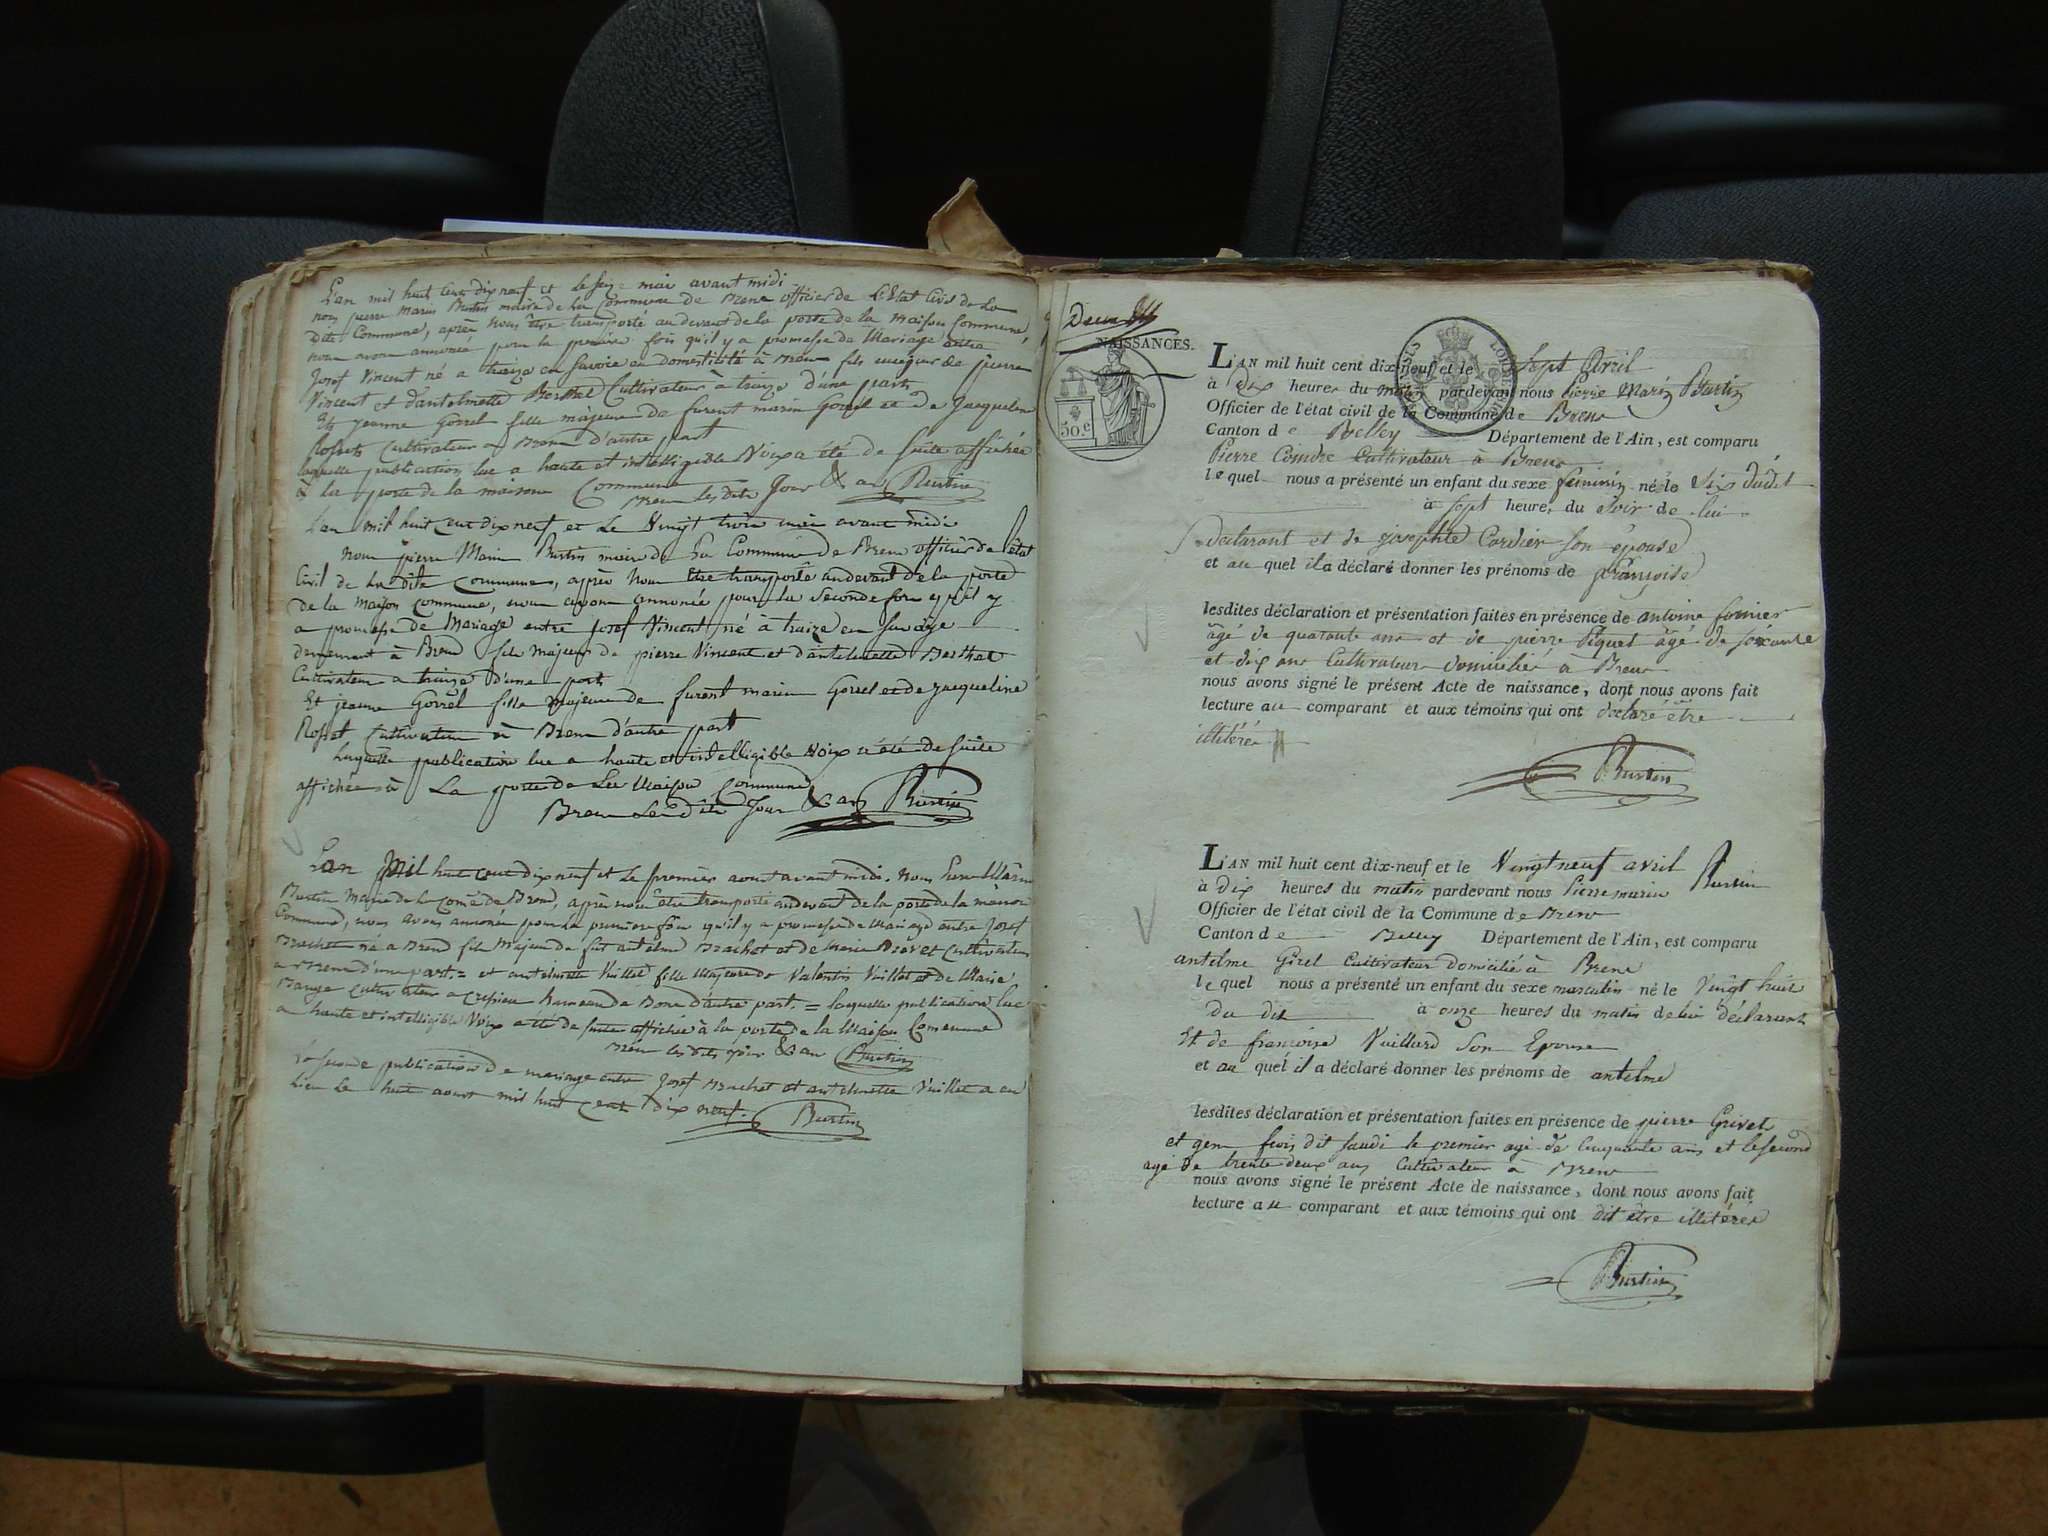 L'an mil huit cent dix neuf et le seize mai avant midi
nous pierre Marin Burtin maire de la Commune de Brens officier de L'Etat Civil de La
dite Commune, après nous être transporté au devant de la porte de la Maison Commune,
nous avons annoncé pour la première fois qu'il y a promesse de Mariage entre
Josef Vincent né a traize en Savoie en domesticité à Brens fils majeur de pierre
Vincent et d'antelmette Berthet Cultivateur à traize d'une part
Et Jeanne Gorrel fille majeure de furent marin Gorrel et de Jacqueline
Rosset Cultivateur a Brens d'autre part
laquelle publication lue a haute et intelligible Voix a été de suite affichée
à la porte de la maison Commune
Brens les dits Jour & an Burtin
L'an mil huit cent dix neuf et Le Vingt trois mai avant midi
nous pierre Marin Burtin maire de La Commune de Brens officier de l'état
Civil de La dite Commune, après nous Etre transporté au devant de la porte
de la maison commune, nous avons annoncé pour la seconde fois qu'il y
a promesse de Mariage entre Josef Vincent né à traize en
demeurant à Brens fils majeur de pierre Vincent et d'antelmette Berthet
Cultivateur a traize d'une part
Et jeanne Gorrel fille majeure de furent marin Gorrel et de jacqueline
Rosset Cultivateur à Brens d'autre part
Laquelle publication lue a haute et intelligible Voix a été de suite
affichée à La porte de La Maison Commune
Brens Les dits Jour & an Burtin
L'an Mil huit cent dix neuf et Le premier aout avant midi. nous Pierre Marin
Burtin Maire de la Come de Brens, après nous être transporté au devant de la porte de la maison
Commune, nous avons annoncé pour la premiere fois qu'il y a promesse de Mariage entre Josef
Brachet né a Brens fils Majeur de fut antelme Brachet et de Marie cultivateur
a Brens d'une part. = et antelmette Vuillet fille Majeure de Valentin Vuillet et de Marie
cultivateur a hameau de d'autre part. = laquelle publication lue
a haute et intelligible Voix a été de suite affichée à la porte de la Maison Commune
Brens les dits jour & an Burtin
La seconde publication de mariage entre Josef Brachet et antelmette Vuillet a eu
Lieu Le huit aoust mil huit cent dix neuf. Burtin
Deux
NAISSANCES.
50.c
L'AN mil huit cent dix-neuf et le Sept Avril
à dix heures du matin pardevant nous Pierre Marin Burtin
Officier de l'état civil de la Commune de Brens
Canton de Belley Département de l'Ain, est comparu
Pierre Coindre Cultivateur à Brens
lequel nous a présenté un enfant du sexe féminin né le Six dudit
à Sept heures du Soir de lui
déclarant et de josephte Cordier son épouse
et au quel il a déclaré donner les prénoms de françoise
lesdites déclaration et présentation faites en présence de antoine fornier
âgé de quarante ans et de pierre Piquet âgé de soixante
et dix ans Cultivateurs domiciliés à Brens
nous avons signé le présent Acte de naissance, dont nous avons fait
lecture au comparant et aux témoins qui ont declaré être
illitérés
Burtin
L'AN mil huit cent dix-neuf et le Vingt neuf avril
à dix heures du matin pardevant nous Pierre marin Burtin
Officier de l'état civil de la Commune de Brens
Canton de Belley Département de l'Ain, est comparu
antelme Girel Cultivateur domicilié à Brens
lequel nous a présenté un enfant du sexe masculin né le Vingt huit
du dit à onze heures du matin de lui déclarant
Et de françoise Vuillard Son Epouse
et au quel il a déclaré donner les prénoms de antelme
lesdites déclaration et présentation faites en présence de pierre Grivet
et dit le premier agé de Cinquante ans et le second
agé de trente deux ans Cultivateur à Brens
nous avons signé le présent Acte de naissance, dont nous avons fait
lecture au comparant et aux témoins qui ont dit être illitérés
Burtin